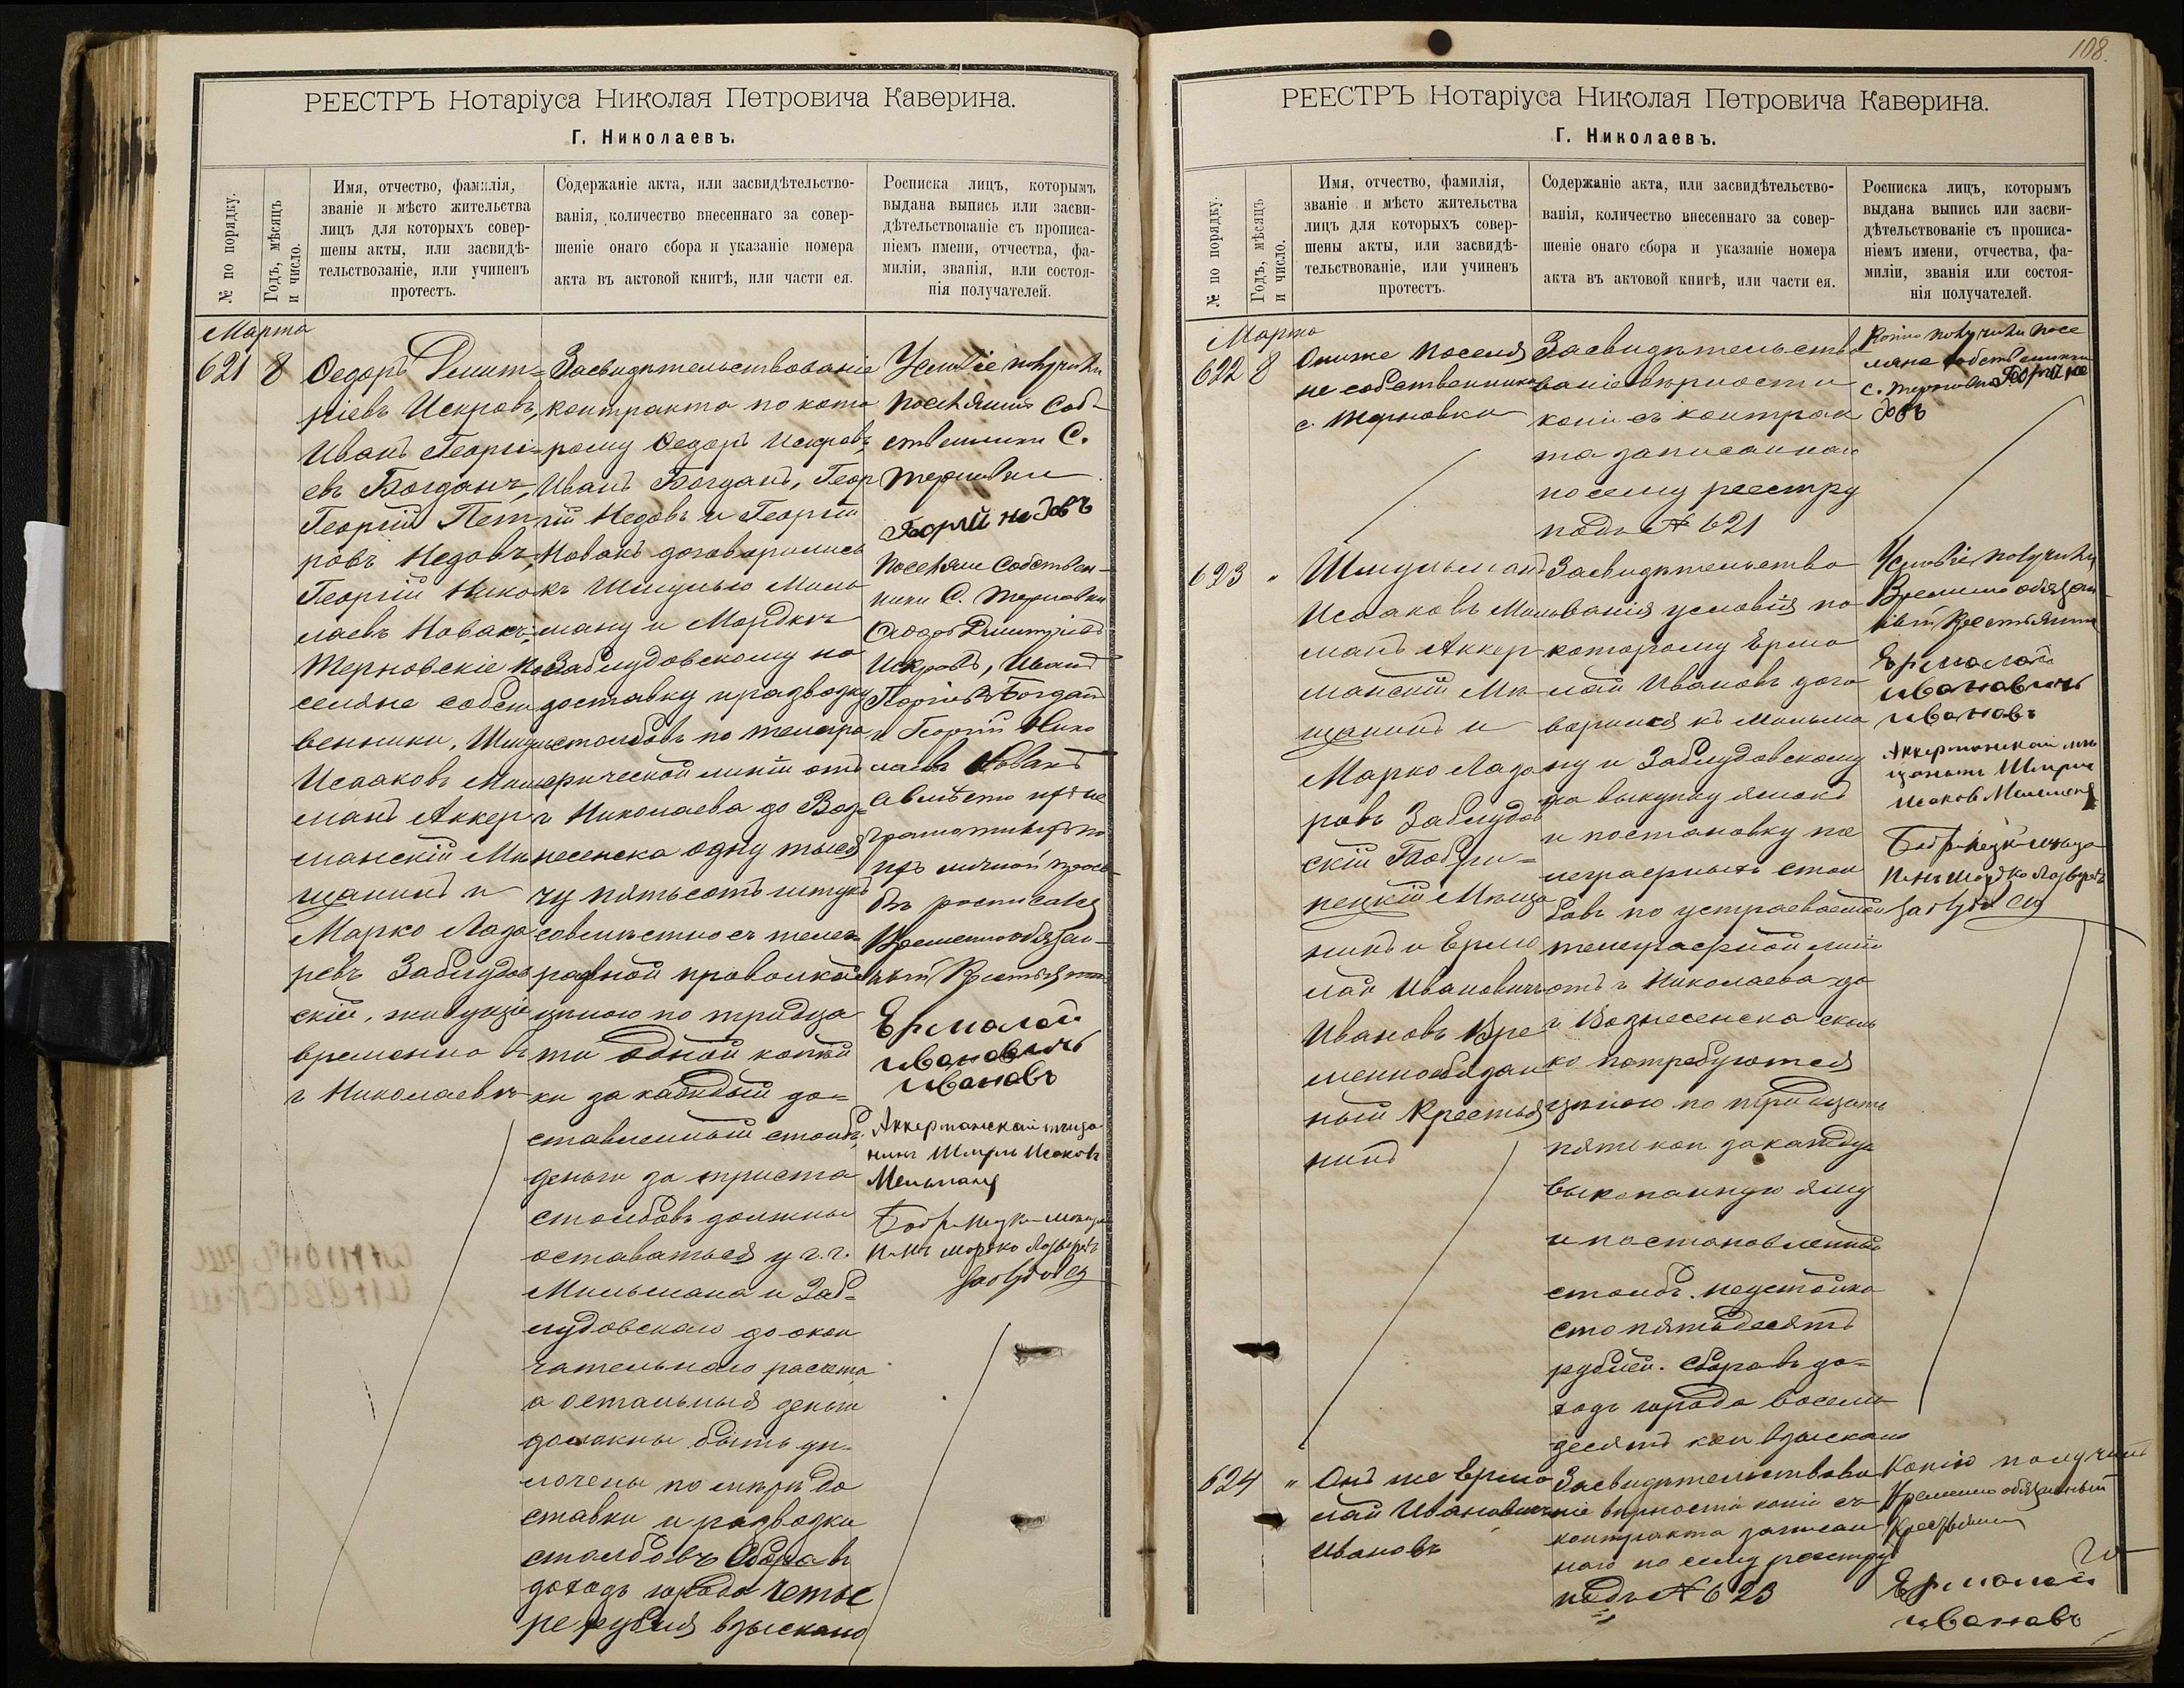 РЕЕСТРЪ Нотаріуса Николая Петровича Каверина.
Г. Николаевъ.
№ по порядку.
Годъ, мѣсяцъ
и число.
Имя, отчество, фамилія,
званіе и мѣсто жительства
лицъ для которыхъ совер-
шены акты, или засвидѣ-
тельствованіе, или учиненъ
протестъ.
Содержаніе акта, или засвидѣтельство-
ванія, количество внесеннаго за совер-
шеніе онаго сбора и указаніе номера
акта въ актовой книгѣ, или части ея.
Росписка лицъ, которымъ
выдана выпись или засви-
дѣтельствованіе съ прописа-
ніемъ имени, отчества, фа-
миліи, званія, или состоя-
нія получателей.
Марта
621 8
Ѳедоръ Дмит-
ріевъ Искровъ,
Иванъ Георгі-
евъ Богданъ,
Георгій Пет-
ровъ Недовъ,
Георгій Нико-
лаевъ Новакъ,
Терновскіе по
селяне собст
венники, Шмуль
Исааковъ Миль
манъ Аккер
манскій Мѣ
щанинъ и
Марко Лаза
ревъ Заблудов
скій, живущіе
временно въ
г Николаевѣ
Засвидѣтельствованіе
контракта по кото
рому Ѳедоръ Искровъ,
Иванъ Богданъ, Геор
гій Недовъ и Георгій
Новакъ договорились
къ Шмулю Миль
ману и Мордкѣ
Заблудовскому на
доставку и разводку
столбовъ по телегра
фической линіи отъ
г Николаева до Воз-
несенска одну тыся
чу пятьсотъ штукъ
совмѣстно съ телег
рафной проволкой
цѣною по тридца
ти одной копѣй
ки за каждый до-
ставленный столбъ.
деньги за триста
столбовъ должны
оставаться у г.г.
Мильмана и Заб-
лудовскаго до окон
чательнаго расчета
а остальныя деньги
должны быть уп-
лочены по мѣрѣ до
ставки и разводки
столбовъ Сбора въ
доходъ города четы
ре рубля взыскано
Условіе получили
поселяние соб-
ственники С.
Терновки
Георгій Недовъ
Поселяне Собствен-
ники С. Терновки
Ѳедоръ Дмитріевъ
Искровъ, Иванъ
Георгіевъ Богданъ
и Георгій Нико
лаевъ Новакъ
а вмѣсто ихъ не
грамотныхъ по
ихъ личной прось-
бѣ росписался
Временнообязан-
ный Крестьянинъ
Ермолай
Ивановичъ
Ивановъ
Аккерманскій мѣща
нинъ Шмуль Исаковъ
Мильманъ
108.
РЕЕСТРЪ Нотаріуса Николая Петровича Каверина.
Г. Николаевъ.
№ по порядку.
Годъ, мѣсяцъ
и число.
Имя, отчество, фамилія,
званіе и мѣсто жительства
лицъ для которыхъ совер-
шены акты, или засвидѣ-
тельствованіе, или учиненъ
протестъ.
Содержаніе акта, или засвидѣтельство-
ванія, количество внесеннаго за совер-
шеніе онаго сбора и указаніе номера
акта въ актовой книгѣ, или части ея.
Росписка лицъ, которымъ
выдана выпись или засви-
дѣтельствованіе съ прописа-
ніемъ имени, отчества, фа-
миліи, званія или состоя-
нія получателей.
Марта
622 8
Они же поселя
не собственники
с. Терновки
Засвидѣтельство
ваніе вѣрности
копіи съ контрак
та записаннаго
по сему реестру
подъ № 621
Копію получили посе
ляне собственники
с. Терновки Георгій Не
довъ
623 "
Шмуль
Исааковъ Миль
манъ Аккер
манскій Мѣ
щанинъ и
Марко Лаза
ревъ Заблудов
скій Бобри-
нецкій Мѣща
нинъ и Ермо
лай Ивановичъ
Ивановъ Вре
меннообязан
ный Крестья
нинъ
Засвидѣтельство
ванія условія по
которому Ермо
лай Ивановъ дого
ворился къ Мильма
ну и Заблудовскому
на выкупку ямокъ
и постановку те
леграфныхъ стол
бовъ по устраеваемой
телеграфной линіи
отъ г Николаева до
г Вознесенска сколь
ко потребуются
цѣною по тридцать
пяти коп за каждую
выкопанную яму
и постановленный
столбъ. неустойка
сто пятьдесятъ
рублей. Сбора въ до-
ходъ города восемь
десятъ коп взыскано
Условіе получили
Временнообязан-
ный Крестьянинъ
Ермолай
Ивановичъ
Ивановъ
Аккерманскій мѣ
щанинъ Шмуль
Исаковъ Мильманъ
624 "
Онъ же Ермо
лай Ивановичъ
Ивановъ
Засвидѣтельствова
ніе вѣрности копіи съ
контракта записан
наго по сему реестру
подъ № 623
Копію получилъ
Временнообязанный
Крестьянинъ
Ермолай
Ивановъ